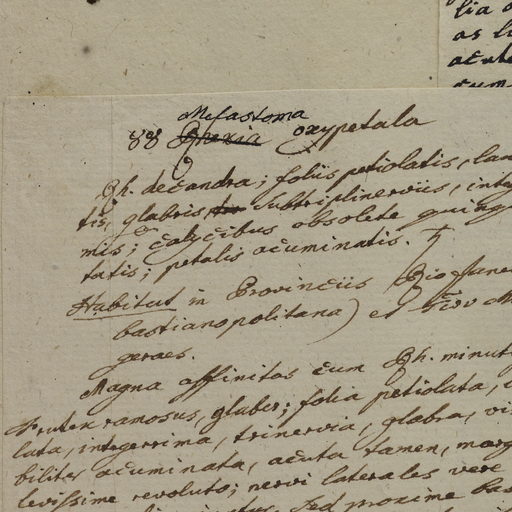 lia
as
acute
cum
Melastoma
88 Rhexia oxypetala
Rh. decandra; foliis petiolatis, lan
tis, glabris, subtriplinerviis, inte
mis; calycibus obsolete quinq
tatis; petalis acuminatis.
Habitat in Provinciis Rio Jane
bastianopolitana) et
geraes.
Magna affinitas cum Rh. minut
Frutex ramosus, glaber; folia petiolata,
lata, integerrima, trinervia, glabra, vi
biliter acuminata, acuta tamen, marg
levissime revoluto; nervi laterales vere
sed proxime bas